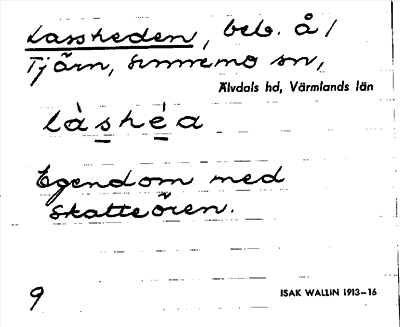 Lassheden, beb. å /
Tjärn, Sunnemo sn,
Älvdals hd, Värmlands län
làshéa
Egendom med
skatteören.
9
ISAK WALLIN 1913–16